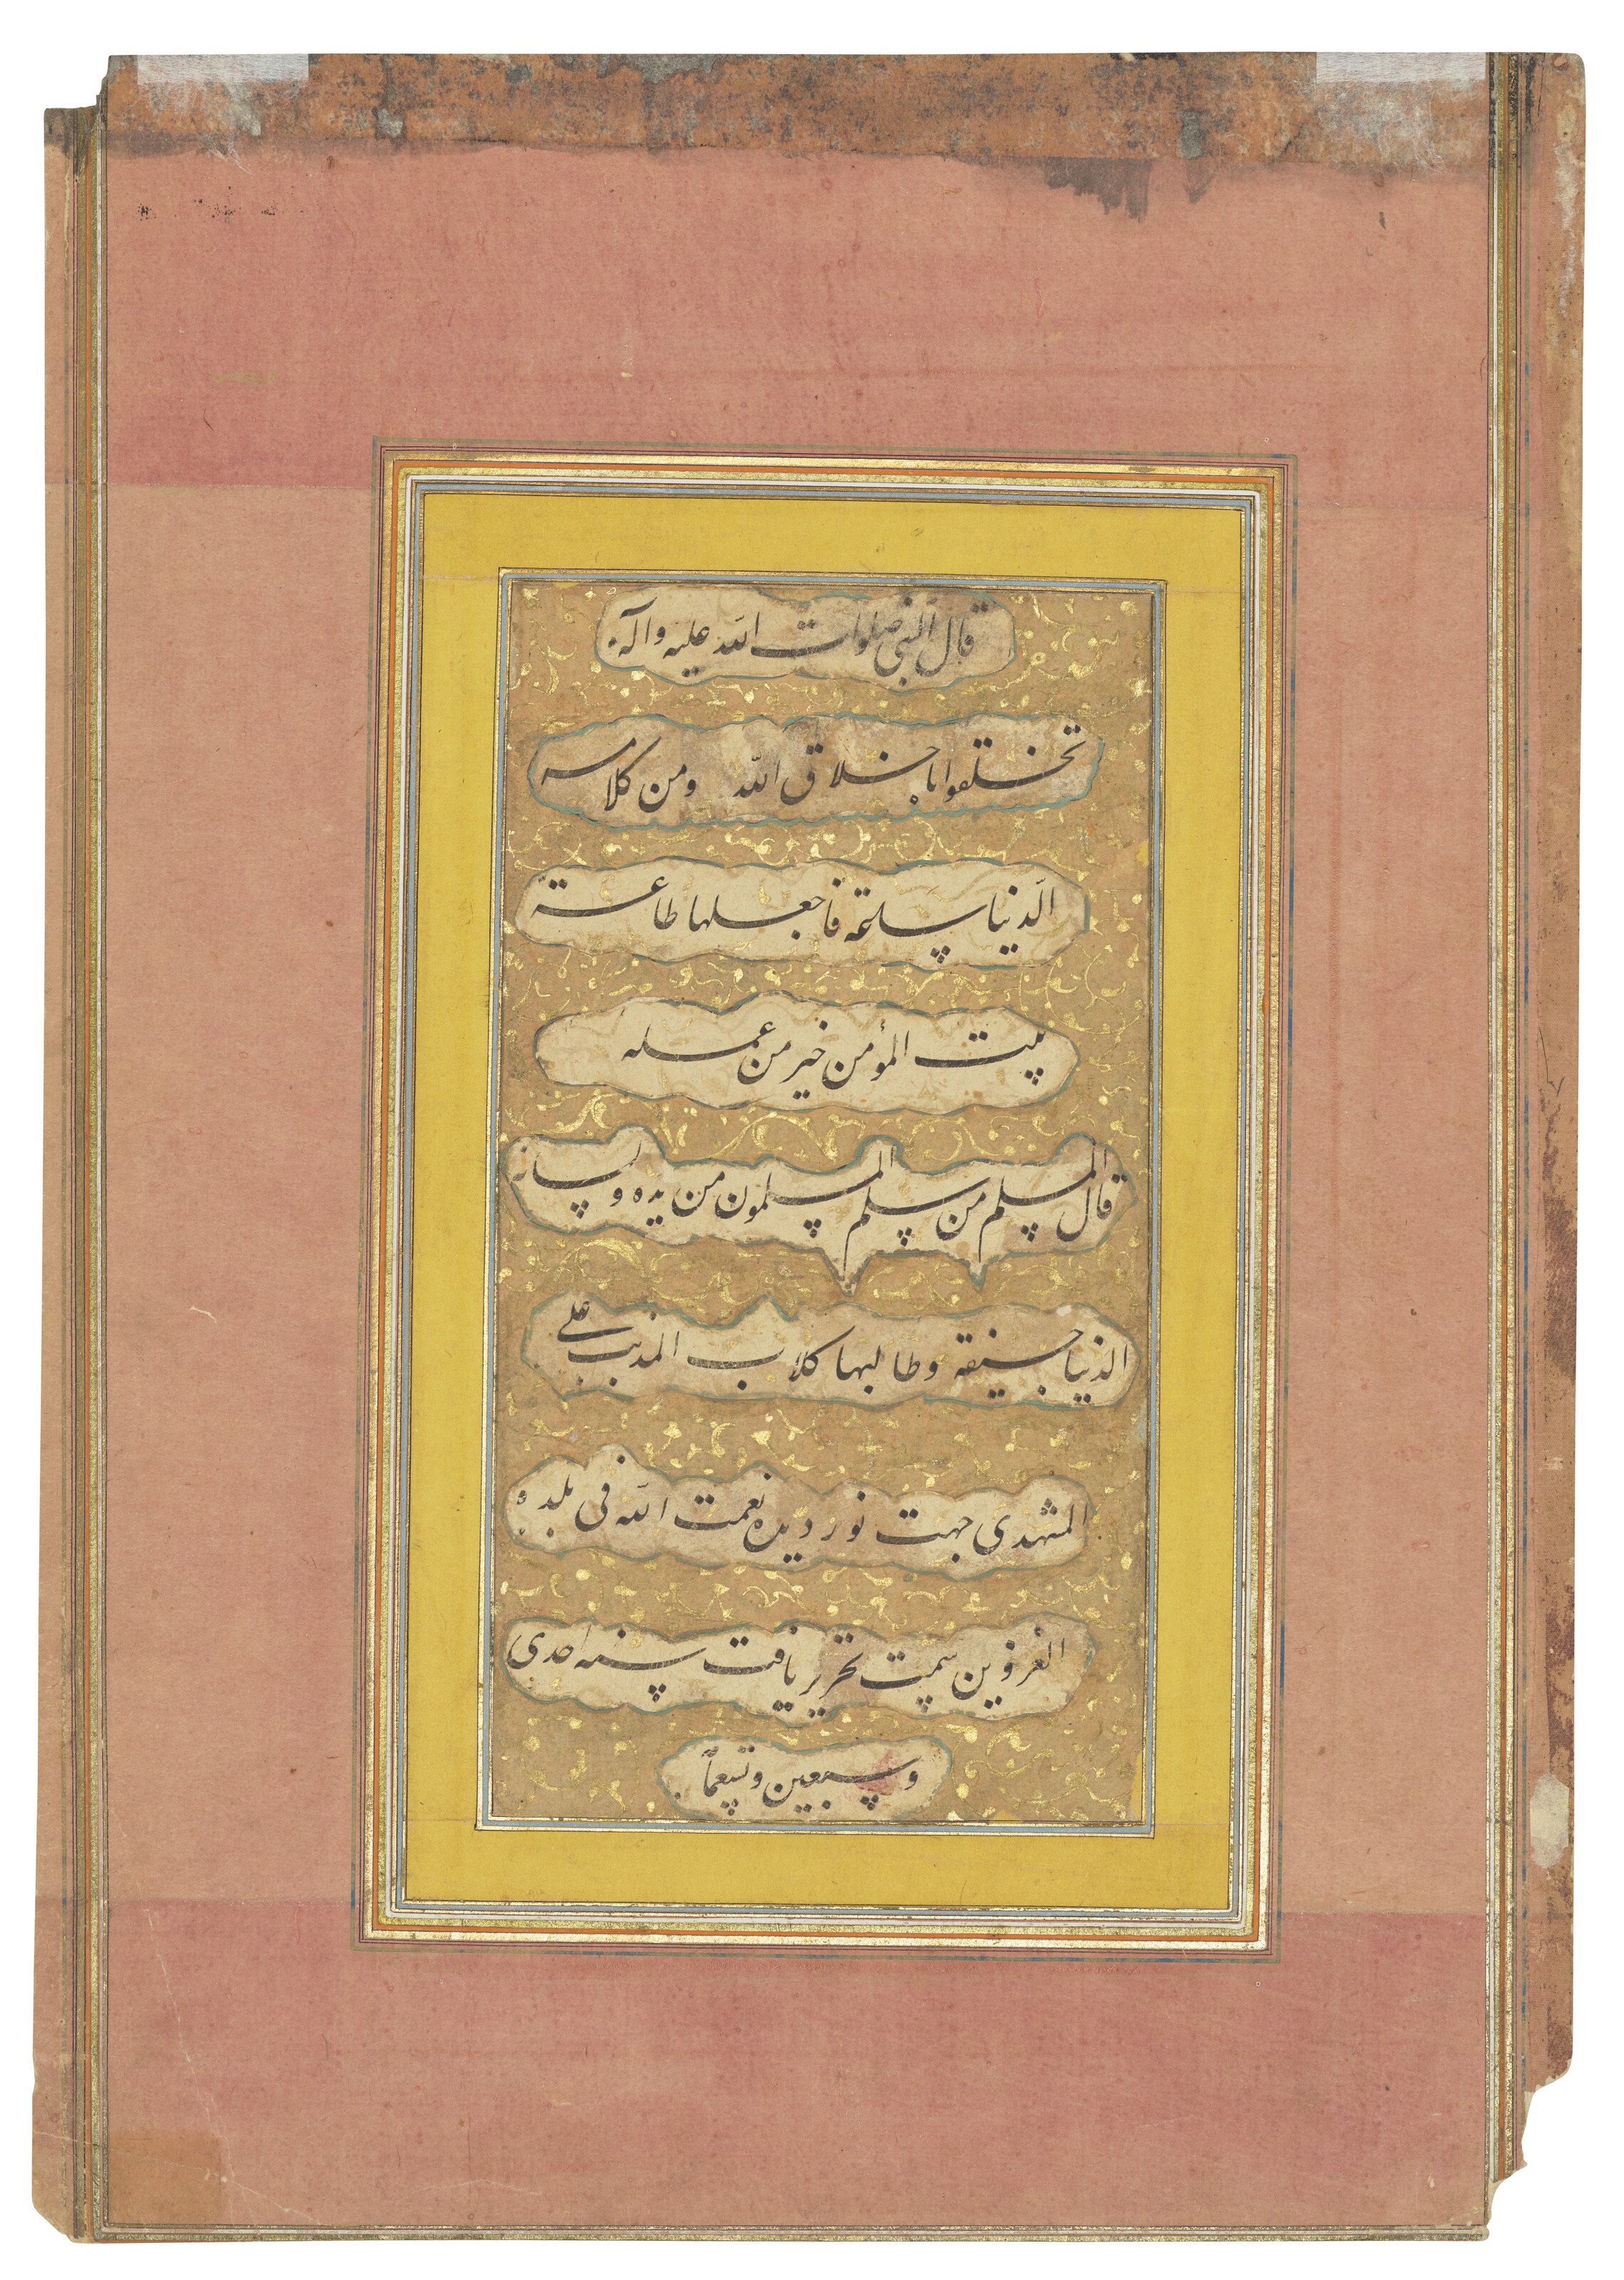 قال النبی صلوات الله علیه وآله
تخلقوا باخلاق الله ومن کلامه
الدنیا ساعة فاجعلها طاعة
نیت المؤمن خیر من عمله
قال المسلم من سلم المسلمون من یده ولسانه
الدنیا جیفة وطالبها کلاب المذنب علی
المشهدی جهت نور دیده نعمت الله فی بلده
القزوین سمت تحریر یافت سنه احدی
وسبعین وتسعمأ